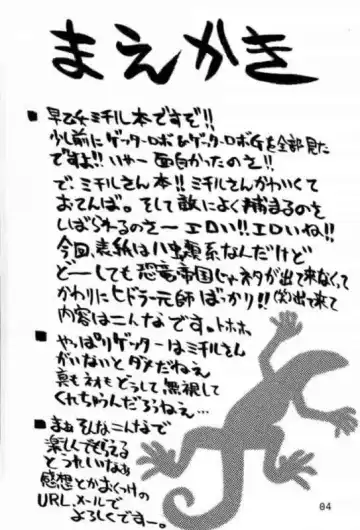 まえがき
■ 早乙女ミチル本ですぞ!!
少し前にゲッターロボ&ゲッターロボGを全部見た
ですよ!! いやー面白かったのさ!!
で、ミチルさん本!! ミチルさんかわいくて
おてんば。そして敵によく捕まるのさ
しばられるのさー エロい!! エロいね!!
今回、表紙はハ虫類系なんだけど
どーしても恐竜帝国じゃネタが出て来なくて
かわりにヒドラー元師ばっかり!!(笑)出て来て
内容はこんなです。トホホ。
■ やっぱりゲッターはミチルさん
がいないとダメだねぇ
真もネオもどうして無視して
くれちゃうんだろうねぇ…
■ まぁそんなこんなで
楽しんでもらえる
とうれしいなぁ
感想とかおくつけの
URL、メールで
よろしくですー。
04